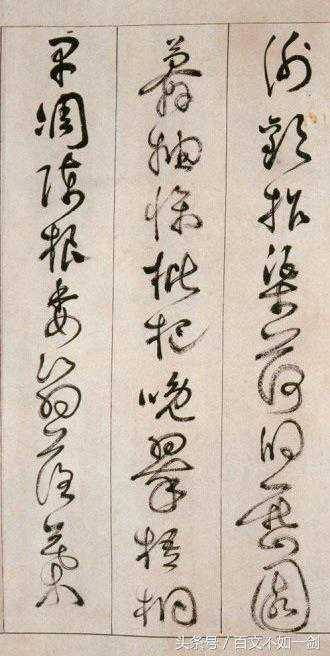 謝歡招渠荷的歷園
莽抽條枇杷晚翠梧桐
早凋陳根委翳落葉
头条号 / 百文不如一剑